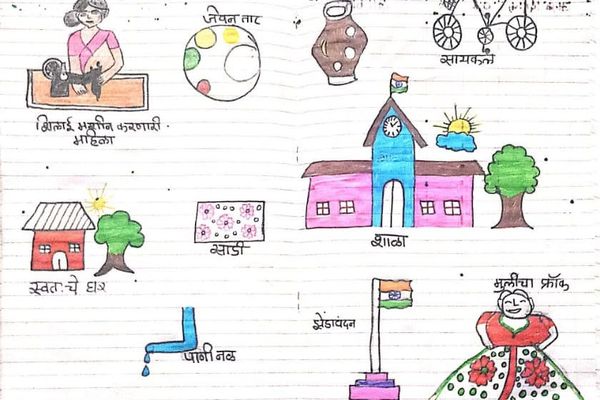 जेवन ताट
सायकल
शिलाई मशीन करणारी
महिला
शाळा
साडी
स्वतःचे घर
मुलीचा फ्रॉक
झेंडावंदन
पाणी नळ